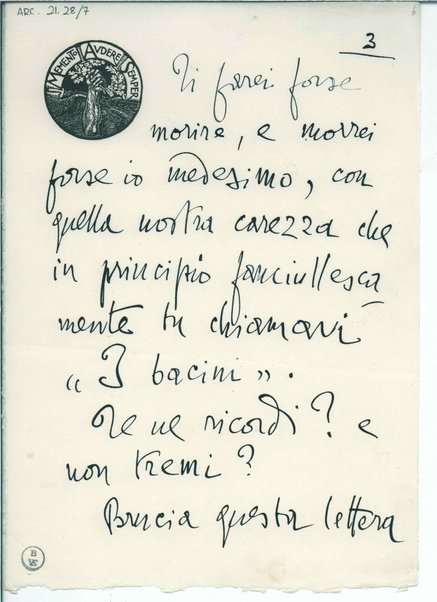 ARC. 21. 28/7
6
3
MEMENTO AVDERE SEMPER
Ti farei forse
morire, e morrei
forse io medesimo, con
quella nostra carezza che
in principio fanciullesca
mente tu chiamavi
« I bacini ».
Te ne ricordi? e
non tremi?
Brucia questa lettera